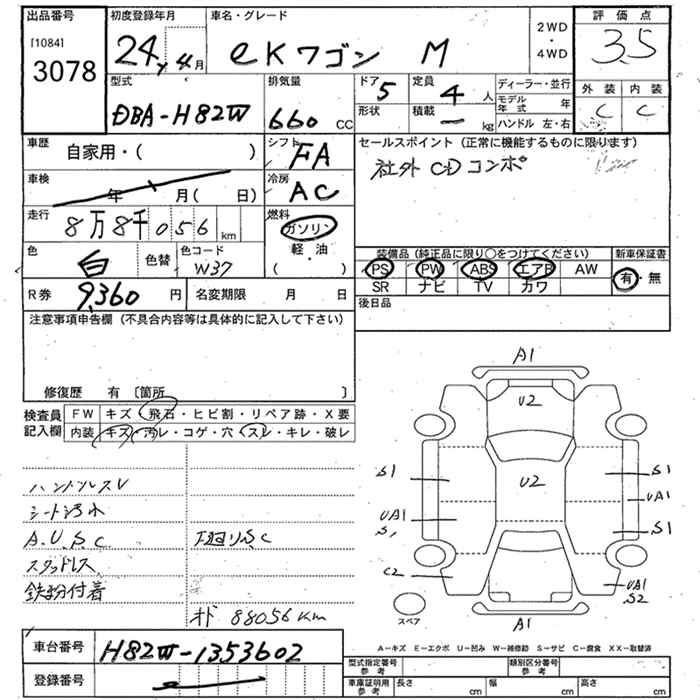 出品番号
[1084]
3078
初度登録年月
24年4月
車名・グレード
eKワゴン M
2WD
・
4WD
評価点
3.5
外装 内装
C C
型式
DBA-H82W
排気量
660 CC
ドア 5
形状
定員 4 人
積載 — kg
ディーラー・並行
モデル年式 年
ハンドル 左・右
車歴
自家用・( )
シフト
FA
車検
年 月( 日)
冷房
AC
走行
8万8千056 km
燃料
ガソリン
・
軽・油
( )
色
白
色替
色コード
W37
R券 9,360 円
名変期限 月 日
セールスポイント(正常に機能するものに限ります)
社外CDコンポ
装備品(純正品に限り○をつけてください)
新車保証書
PS PW ABS エアB AW
SR ナビ TV カワ
有・無
後日品
注意事項申告欄(不具合内容等は具体的に記入して下さい)
修復歴 有〔箇所 〕
検査員記入欄
FW キズ・飛石・ヒビ割・リペア跡・X要
内装 キズ・汚レ・コゲ・穴・スレ・キレ・破レ
ハンドルスレ
シート汚れ
A.U.S.C
下廻りS.C
スタッドレス
鉄粉付着
オド 88056 Km
A1
U2
S1 U2 S1
UA1
UA1
S1 S1
C2 UA1
S2
スペア
A1
A-キズ E-エクボ U-凹み W-補修跡 S-サビ C-腐食 XX-取替済
車台番号 H82W-1353602
登録番号
型式指定番号
参考
類別区分番号
参考
車庫証明用
参考
長さ cm 幅 cm 高さ cm